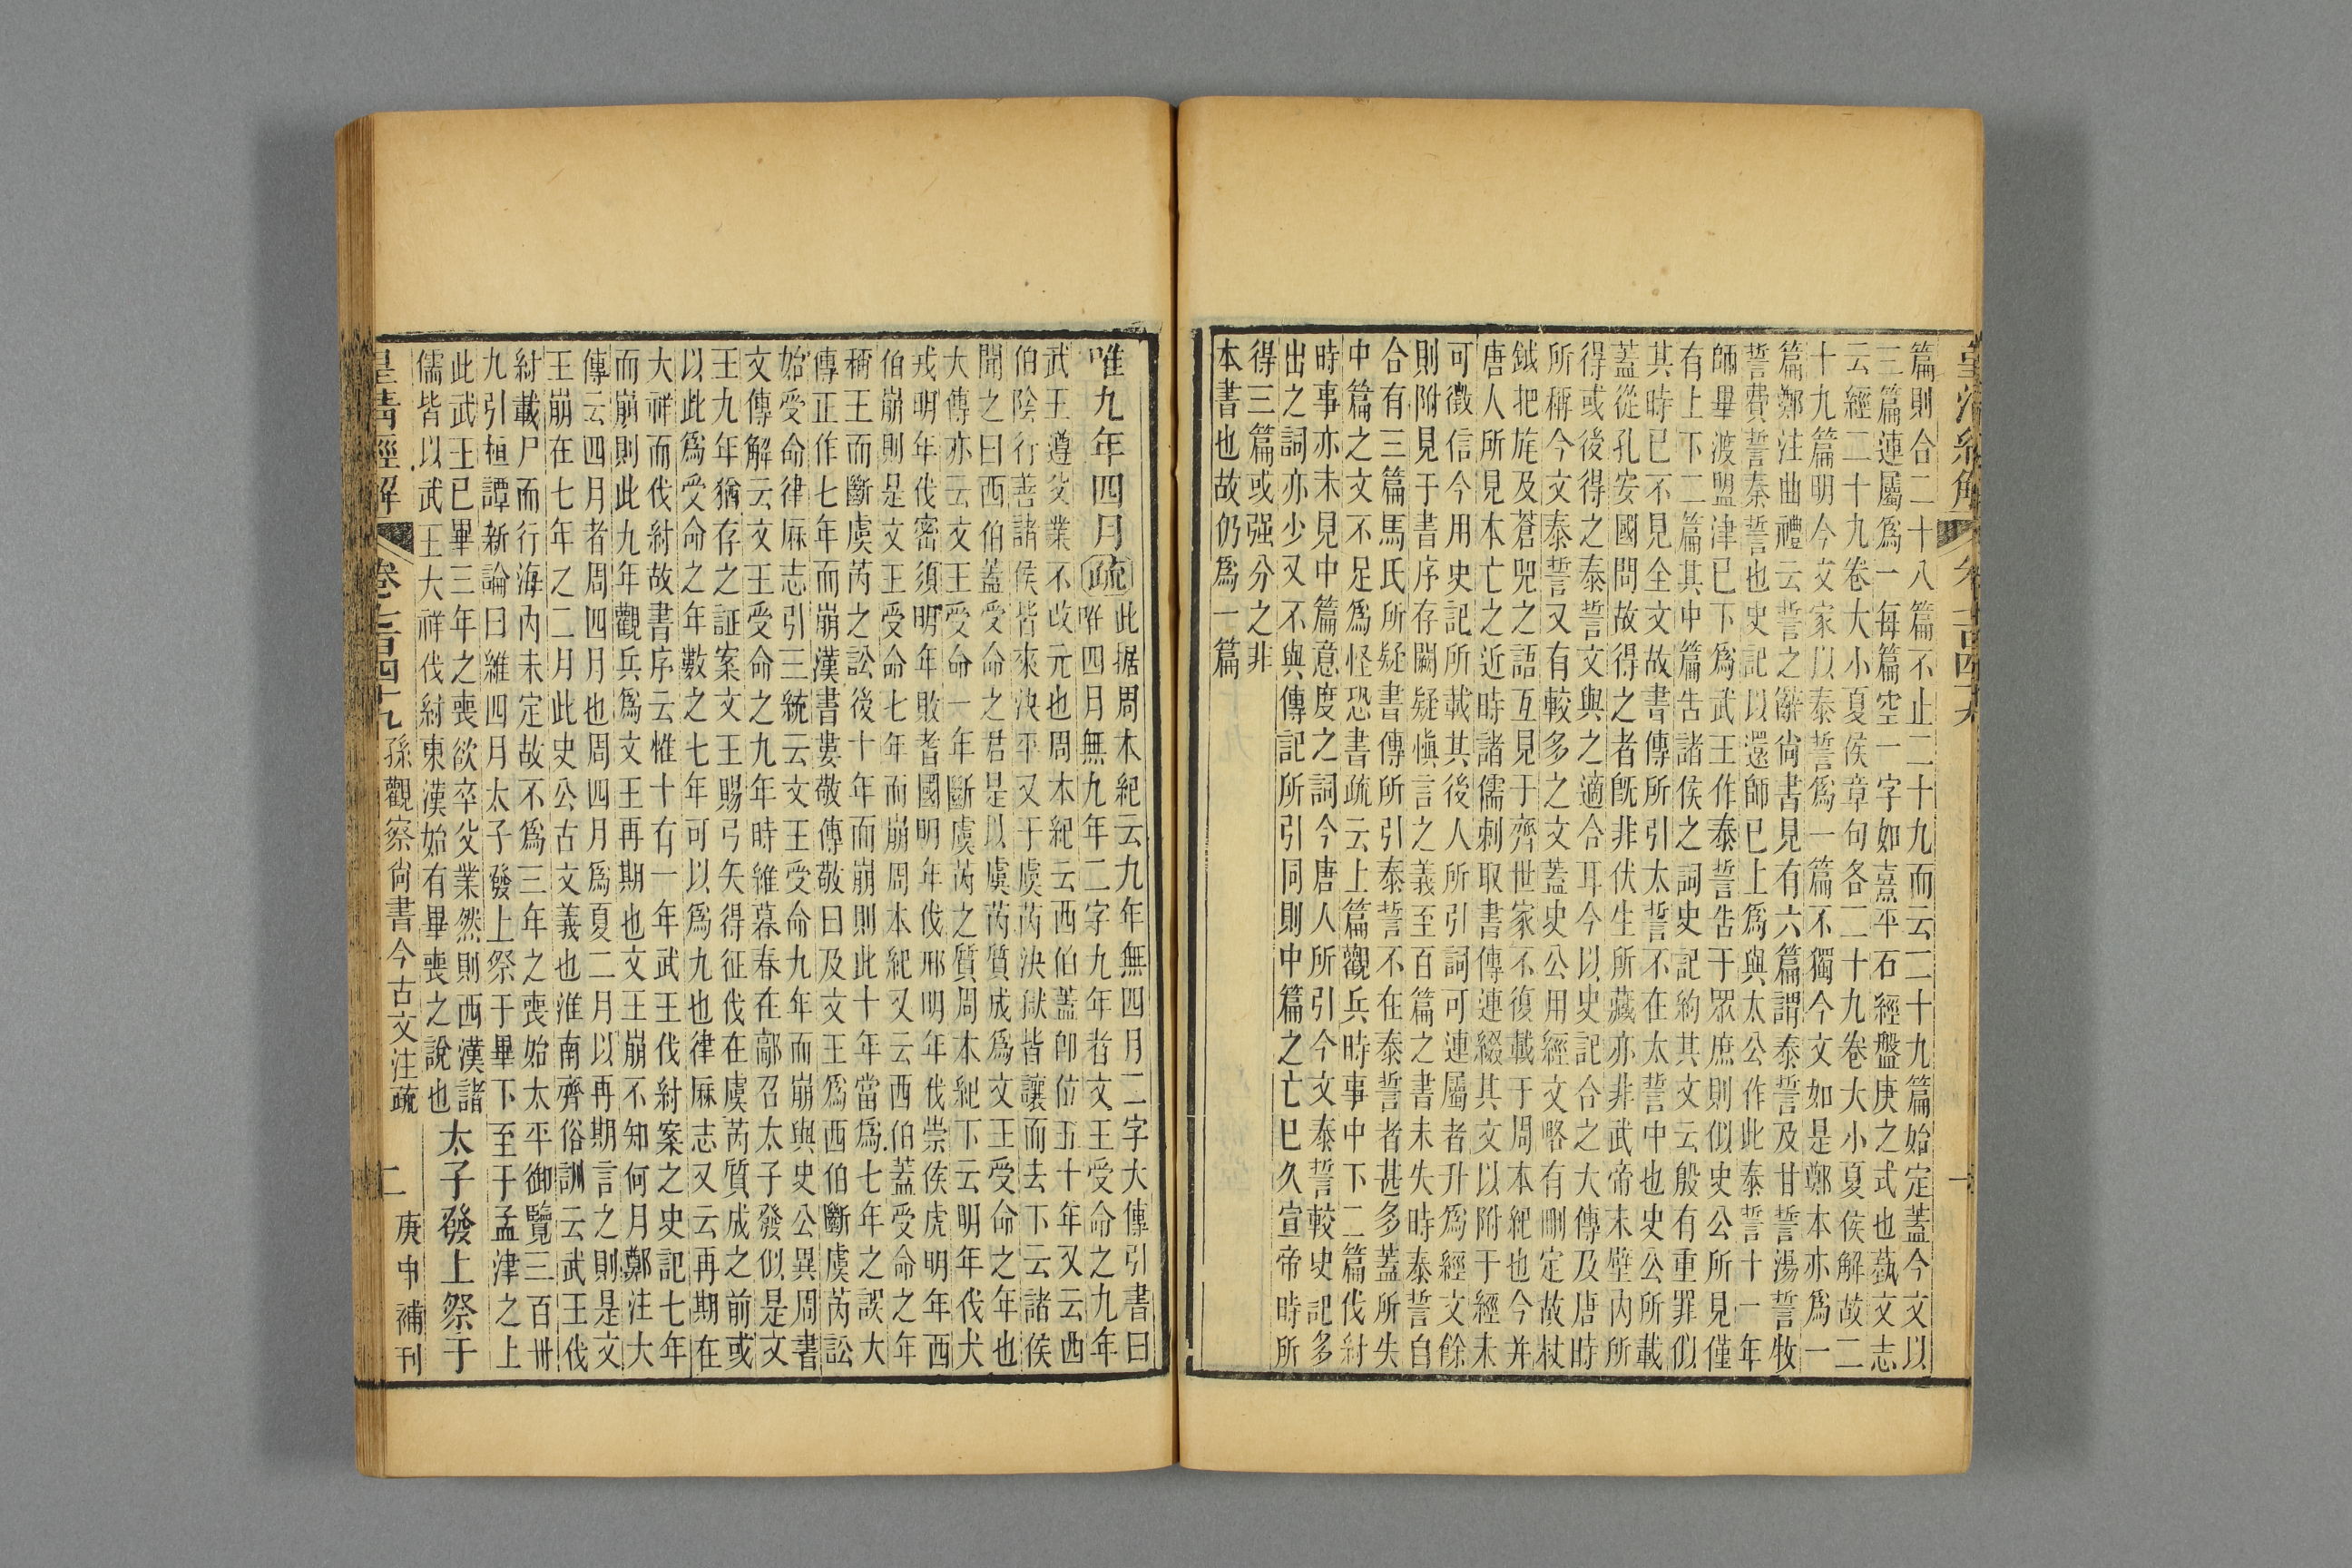 皇清經解
篇則合二十八篇不止二十九而云二十九篇始定蓋今文以
三篇連屬爲一每篇空一字如熹平石經盤庚之式也藝文志
云經二十九卷大小夏侯章句各二十九卷大小夏侯解故二
十九篇明今文家以泰誓爲一篇不獨今文如是鄭本亦爲一
篇鄭注曲禮云誓之辭尙書見有六篇謂泰誓及甘誓湯誓牧
誓費誓秦誓也史記以還師已上爲與太公作此泰誓十一年
師畢渡盟津已下爲武王作泰誓告于眾庶則似史公所見僅
有上下二篇其中篇告諸侯之詞史記約其文云殷有重罪似
其時已不見全文故書傳所引太誓不在太誓中也史公所載
蓋從孔安國問故得之者旣非伏生所藏亦非武帝末壁內所
得或後得之泰誓文與之適合耳今以史記合之大傳及唐時
所稱今文泰誓又有較多之文蓋史公用經文略有刪定故杖
鉞把旄及蒼兕之語互見于齊世家不復載于周本紀也今并
唐人所見本亡之近時諸儒刺取書傳連綴其文以附于經未
可徵信今用史記所載其後人所引詞可連屬者升爲經文餘
則附見于書序存闕疑愼言之義至百篇之書未失時泰誓自
合有三篇馬氏所疑書傳所引泰誓不在泰誓者甚多蓋所失
中篇之文不足爲怪恐書疏云上篇觀兵時事中下二篇伐紂
時事亦未見中篇意度之詞今唐人所引今文泰誓較史記多
出之詞亦少又不與傳記所引同則中篇之亡巳久宣帝時所
得三篇或强分之非
本書也故仍爲一篇
唯九年四月疏此据周本紀云九年無四月二字大傳引書曰
唯四月無九年二字九年者文王受命之九年
武王遵父業不改元也周本紀云西伯蓋卽位五十年又云西
伯陰行善諸侯皆來決平又于虞芮決獄皆讓而去下云諸侯
聞之曰西伯蓋受命之君是以虞芮質成爲文王受命之年也
大傳亦云文王受命一年斷虞芮之質周本紀下云明年伐犬
戎明年伐密須明年敗耆國明年伐邘明年伐崇侯虎明年西
伯崩則是文王受命七年而崩周本紀又云西伯蓋受命之年
稱王而斷虞芮之訟後十年而崩則此十年當爲七年之誤大
傳正作七年而崩漢書婁敬傳敬曰及文王爲西伯斷虞芮訟
始受命律厤志引三統云文王受命九年而崩與史公異周書
文傳解云文王受命之九年時維暮春在鄗召太子發似是文
王九年猶存之証案文王賜弓矢得征伐在虞芮質成之前或
以此爲受命之年數之七年可以爲九也律厤志又云再期在
大祥而伐紂故書序云惟十有一年武王伐紂案之史記七年
而崩則此九年觀兵爲文王再期也文王崩不知何月鄭注大
傳云四月者周四月也周四月爲夏二月以再期言之則是文
王崩在七年之二月此史公古文義也淮南齊俗訓云武王伐
紂載尸而行海內未定故不爲三年之喪始太平御覽三百卅
九引桓譚新論曰維四月太子發上祭于畢下至于孟津之上
此武王已畢三年之喪欲卒父業然則西漢諸
儒皆以武王大祥伐紂東漢始有畢喪之說也
太子發上祭于
皇清經解 卷七百四十九 孫觀察尙書今古文注疏 二 庚申補刊